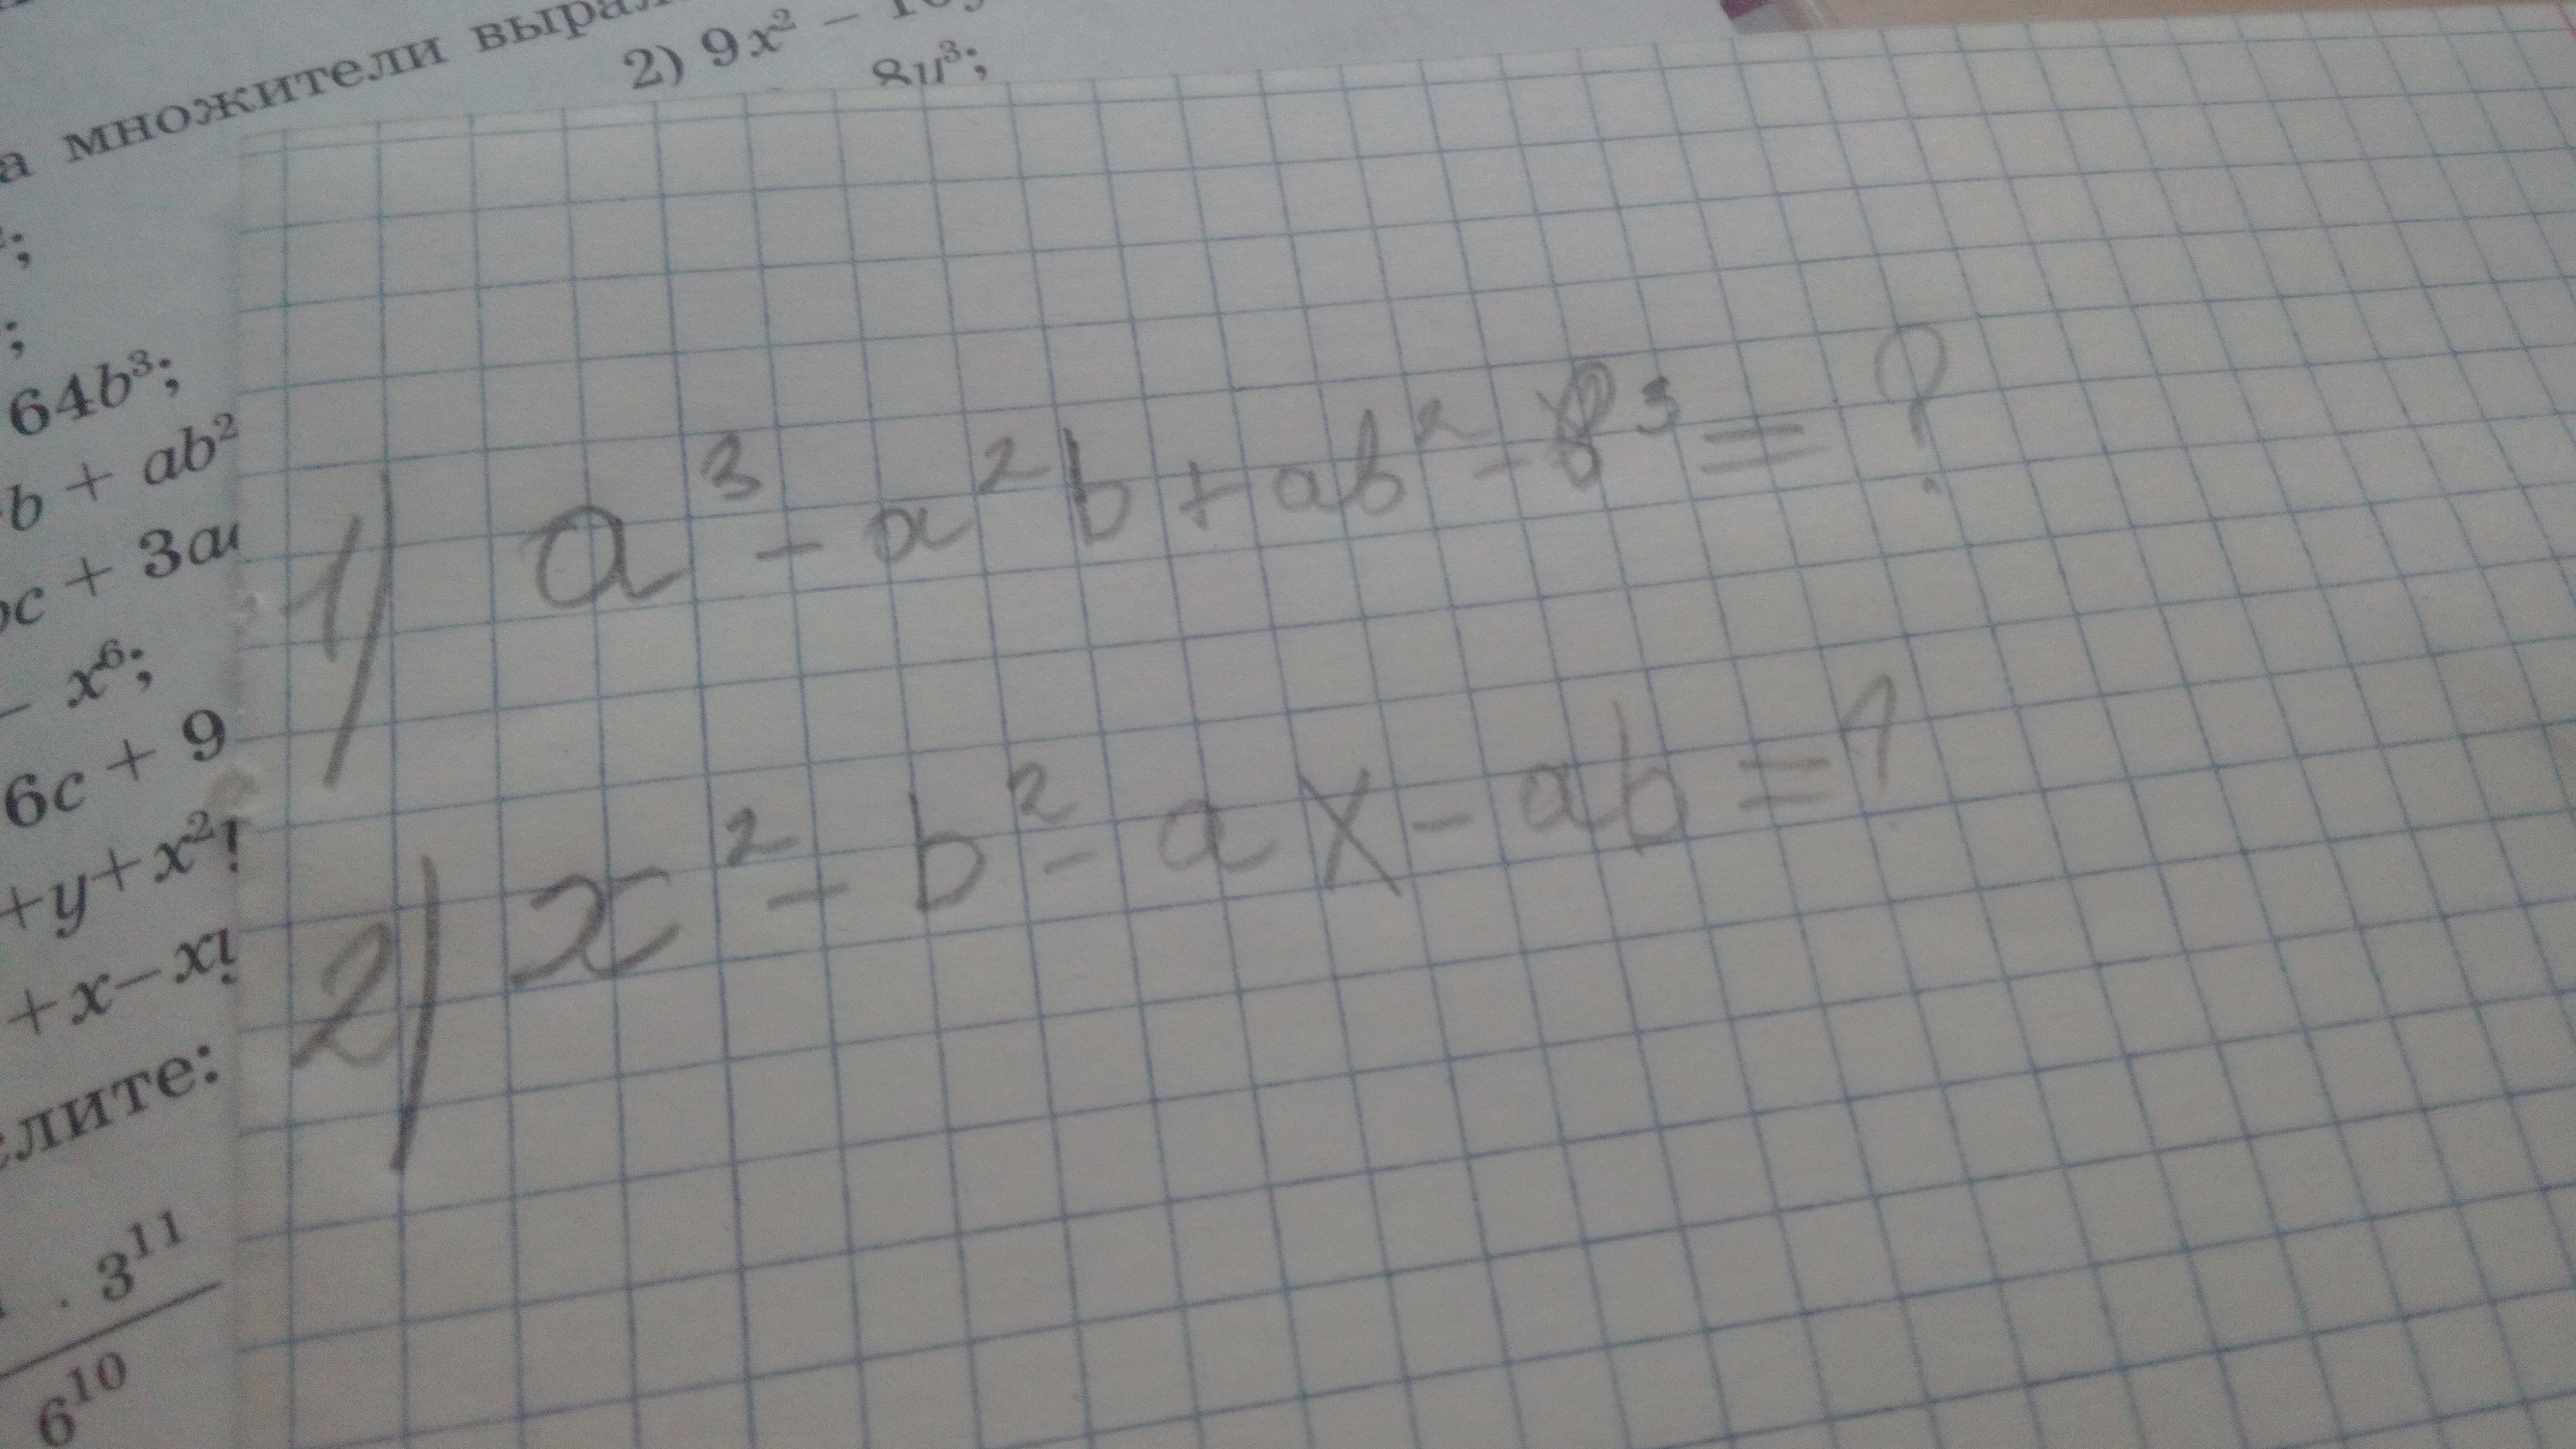 а множители
2) 9x² –
8y³;
;
;
64b³;
b + ab²
c + 3a
– x⁶;
6c + 9
+y+x²
+x–x
лите:
· 3¹¹
6¹⁰
1) a³ - a²b + ab² - b³ = ?
2) x² - b² - ax - ab =